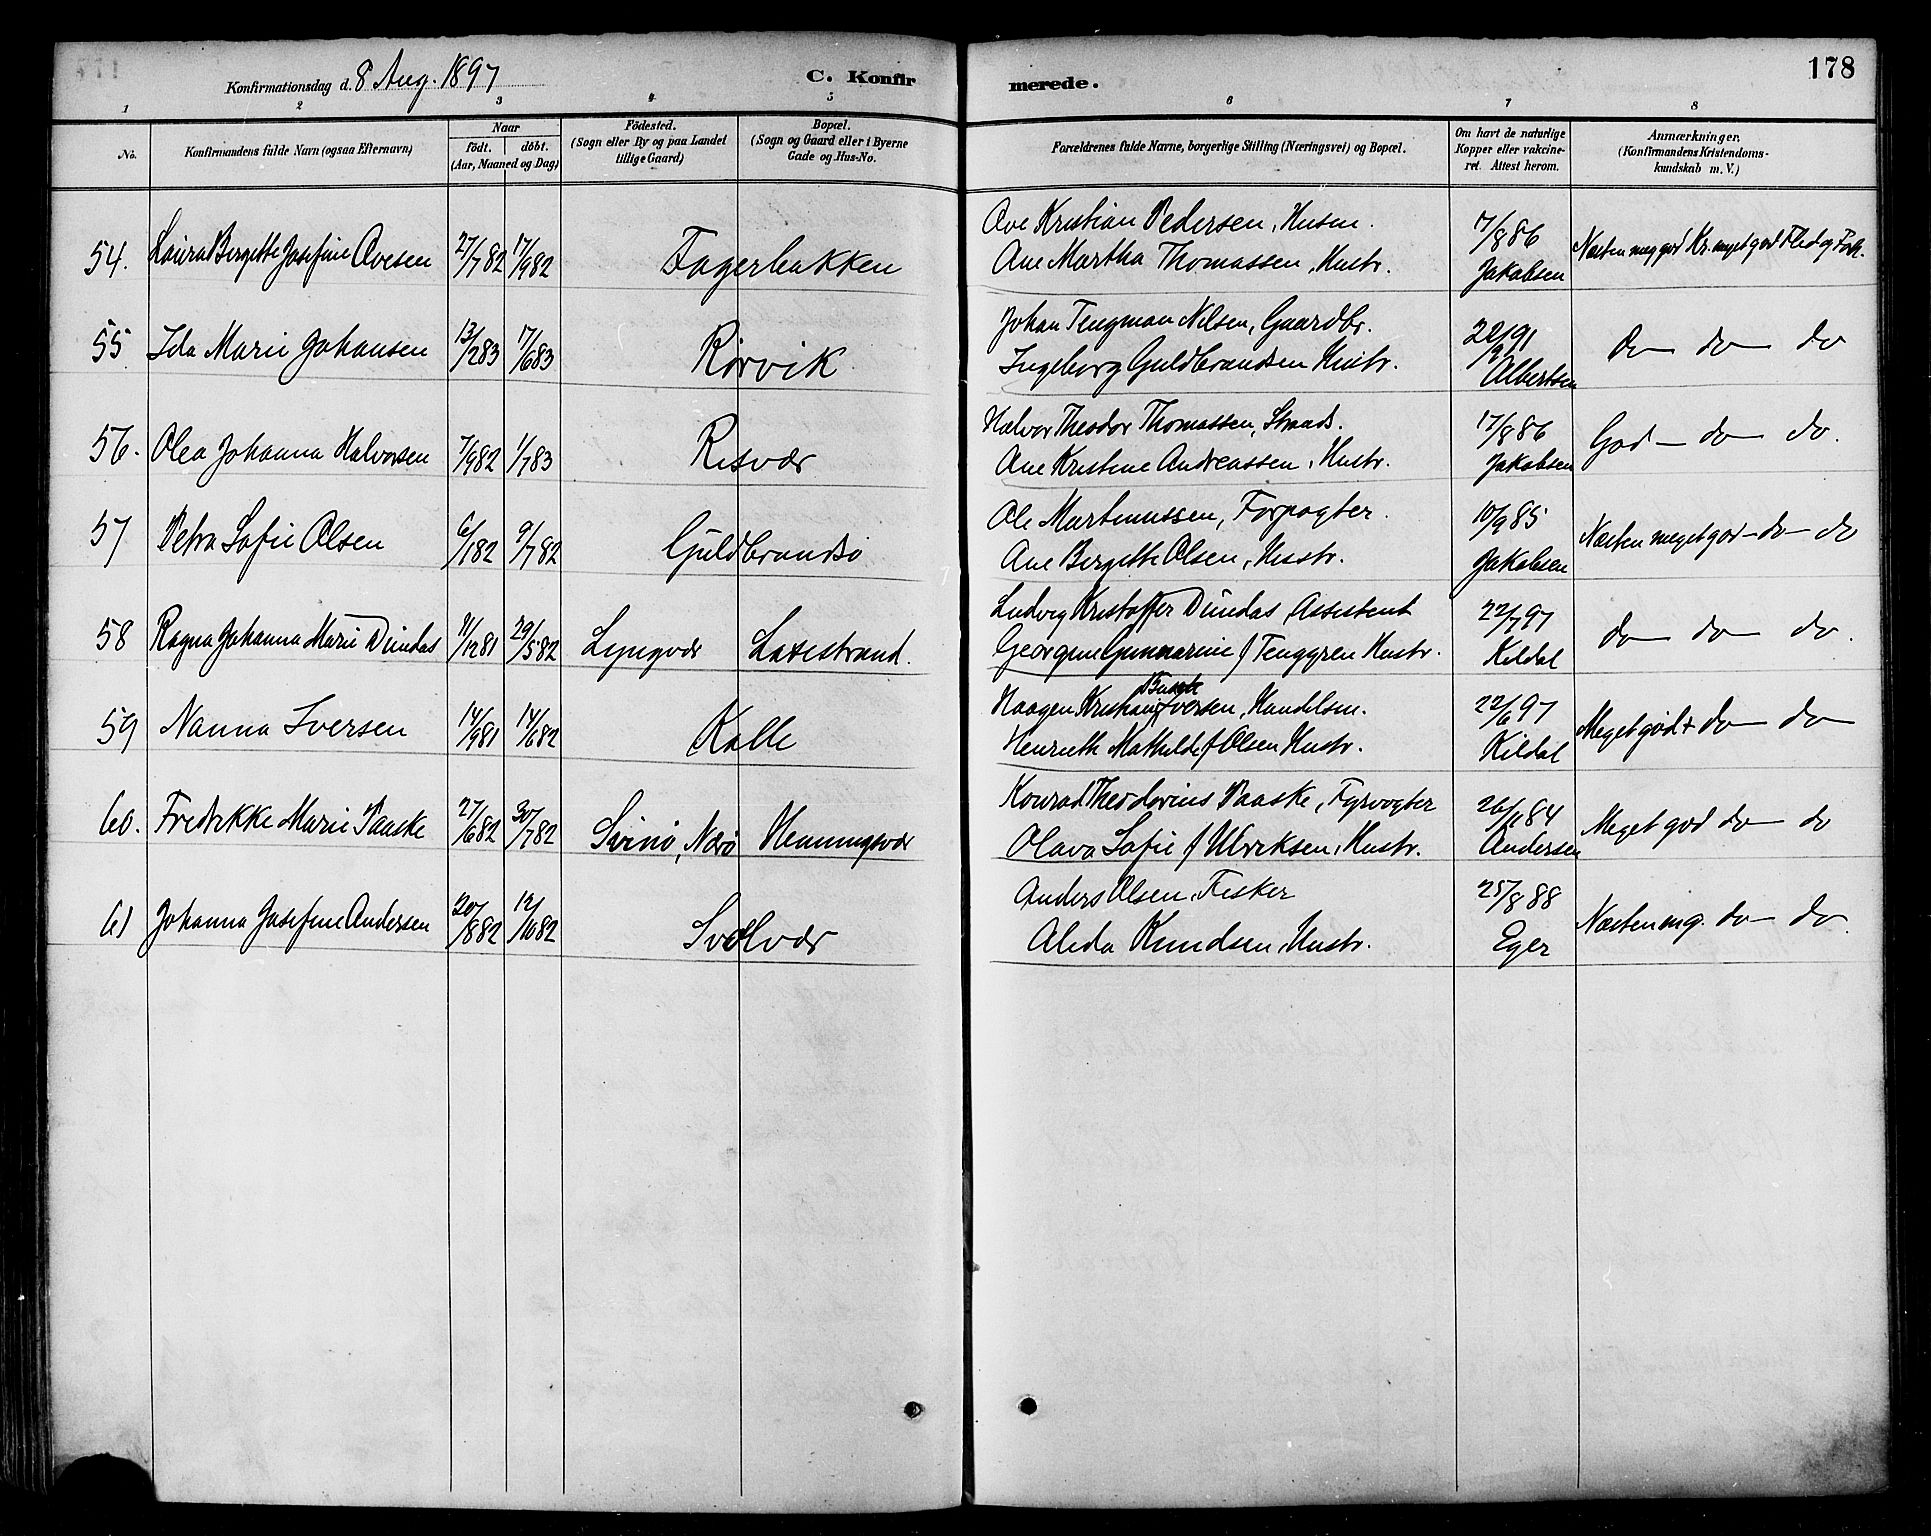 178
Konfirmationsdag d. 8 Aug. 1897
C. Konfirmerede.
1 2 3 4 5 6 7 8
No.
Konfirmandens fulde Navn (ogsaa Efternavn)
Naar
födt. döbt.
(Aar, Maaned og Dag)
Födested.
(Sogn eller By og paa Landet
tillige Gaard)
Bopæl.
(Sogn og Gaard eller i Byerne
Gade og Hus-No.
Forældrenes fulde Navne, borgerlige Stilling (Næringsvei) og Bopæl.
Om havt de naturlige
Kopper eller vakcine-
ret. Attest herom.
Anmærkninger.
(Konfirmandens Kristendoms-
kundskab m. V.)
54. Laura Bergette Josefine Ovesen 27/7 82 17/9 82 Fagerbakken
Ove Kristian Pedersen, Husm. 17/8 86
Ane Martha Thomassen, Hustr. Jakobsen
Næsten meg god Kr. meget god Flid og Forh.
55 Ida Marie Johansen 13/2 83 17/6 83 Rørvik
Johan Tengman Nilsen, Gaardbr. 91
Ingeborg Guldbrandsen Hustr. Albertsen
Do do do
56. Olea Johanna Halvorsen 7/9 82 1/7 83 Risvær
Halvor Theodor Thomassen, Strands. 17/8 86
Ane Kristine Andreassen, Hustr. Jakobsen
God - do - do.
57 Petra Sofie Olsen 6/1 82 9/7 82 Guldbrandsø
Ole Martinussen, Forpagter. 10/9 85
Ane Bergette Olsen, Husstr. Jakobsen
Næsten meget god - do - do
58 Ragna Johanna Marie Dundas 11/12 81 29/5 82 Lyngvær Laxestrand.
Ludvig Kristoffer Dundas Assistent 22/7 97
Georgine Gunnarine f Tenggren Hustr. Kildal
do do do.
59 Nanna Iversen 14/9 81 14/6 82 Kalle
Haagen Kristian Iversen, Handelsm. 22/6 97
Henriette Mathilde f Olsen Hustr. Kildal
Meget god + do - do
60. Fredrikke Marie Paaske 27/6 82 30/7 82 Svinø, Nærø Henningsvær
Konrad Theodorius Paaske, Fyrvogter 84
Olava Sofie f Ulriksen, Hustr. Andersen
Meget god do do
61 Johanna Josefine Andersen 20/8 82 12/10 82 Svolvær
Anders Olsen, Fisker 25/8 88
Alida Knudsen, Hustr. Eger
Næsten mg. do do.